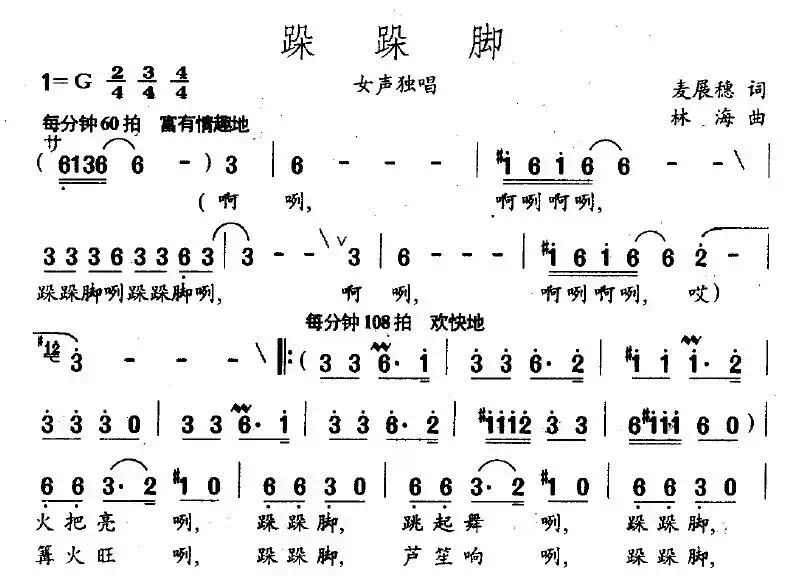 跺 跺 脚
1=G 2/4 3/4 4/4 女声独唱 麦展穗 词
每分钟60拍 富有情趣地 林 海 曲
サ
( 6136 6 - ) 3 | 6 - - | #1 6 1 6 6 - \ |
(啊 咧, 啊咧啊咧,
3 3 3 6 3 3 6 3 | 3 - - \ ∨ 3 | 6 - - | #1 6 1 6 6 2 - |
跺跺脚咧跺跺脚咧, 啊 咧, 啊咧啊咧, 哎)
每分钟108拍 欢快地
#12 3 - - \ ‖: ( 3 3 6· 1 | 3 3 6· 2 | #1 1 1· 2 |
3 3 3 0 | 3 3 6· 1 | 3 3 6· 2 | #1112 3 3 | 6#111 6 0 ) |
6 6 3· 2 | #1 0 | 6 6 3 0 | 6 6 3· 2 | #1 0 | 6 6 3 0 |
火 把 亮 咧, 跺 跺 脚, 跳 起 舞 咧, 跺 跺 脚,
篝 火 旺 咧, 跺 跺 脚, 芦 笙 响 咧, 跺 跺 脚,